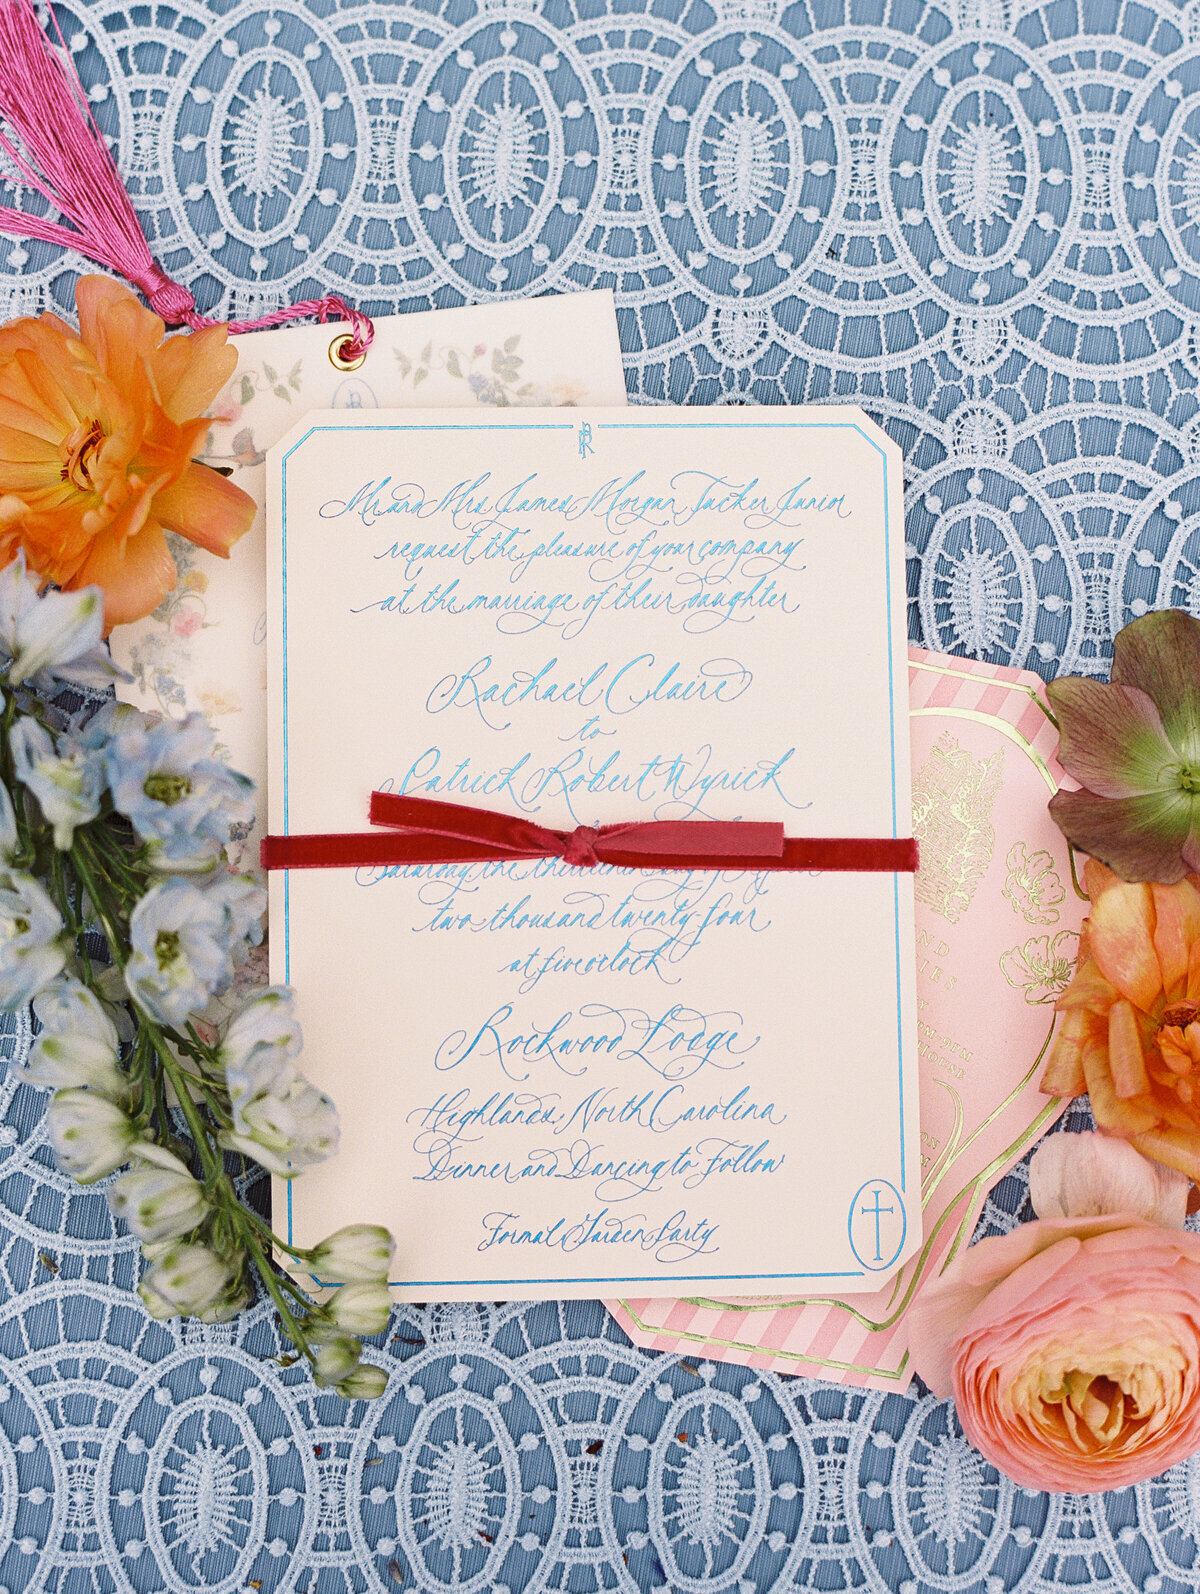 PR
Mr and Mrs James Morgan Tucker Junior
request the pleasure of your company
at the marriage of their daughter
Rachael Claire
to
Patrick Robert Wyrick
Saturday the thirteenth day of
two thousand twenty-four
at five o'clock
Rockwood Lodge
Highlands, North Carolina
Dinner and Dancing to Follow
Formal Garden Party